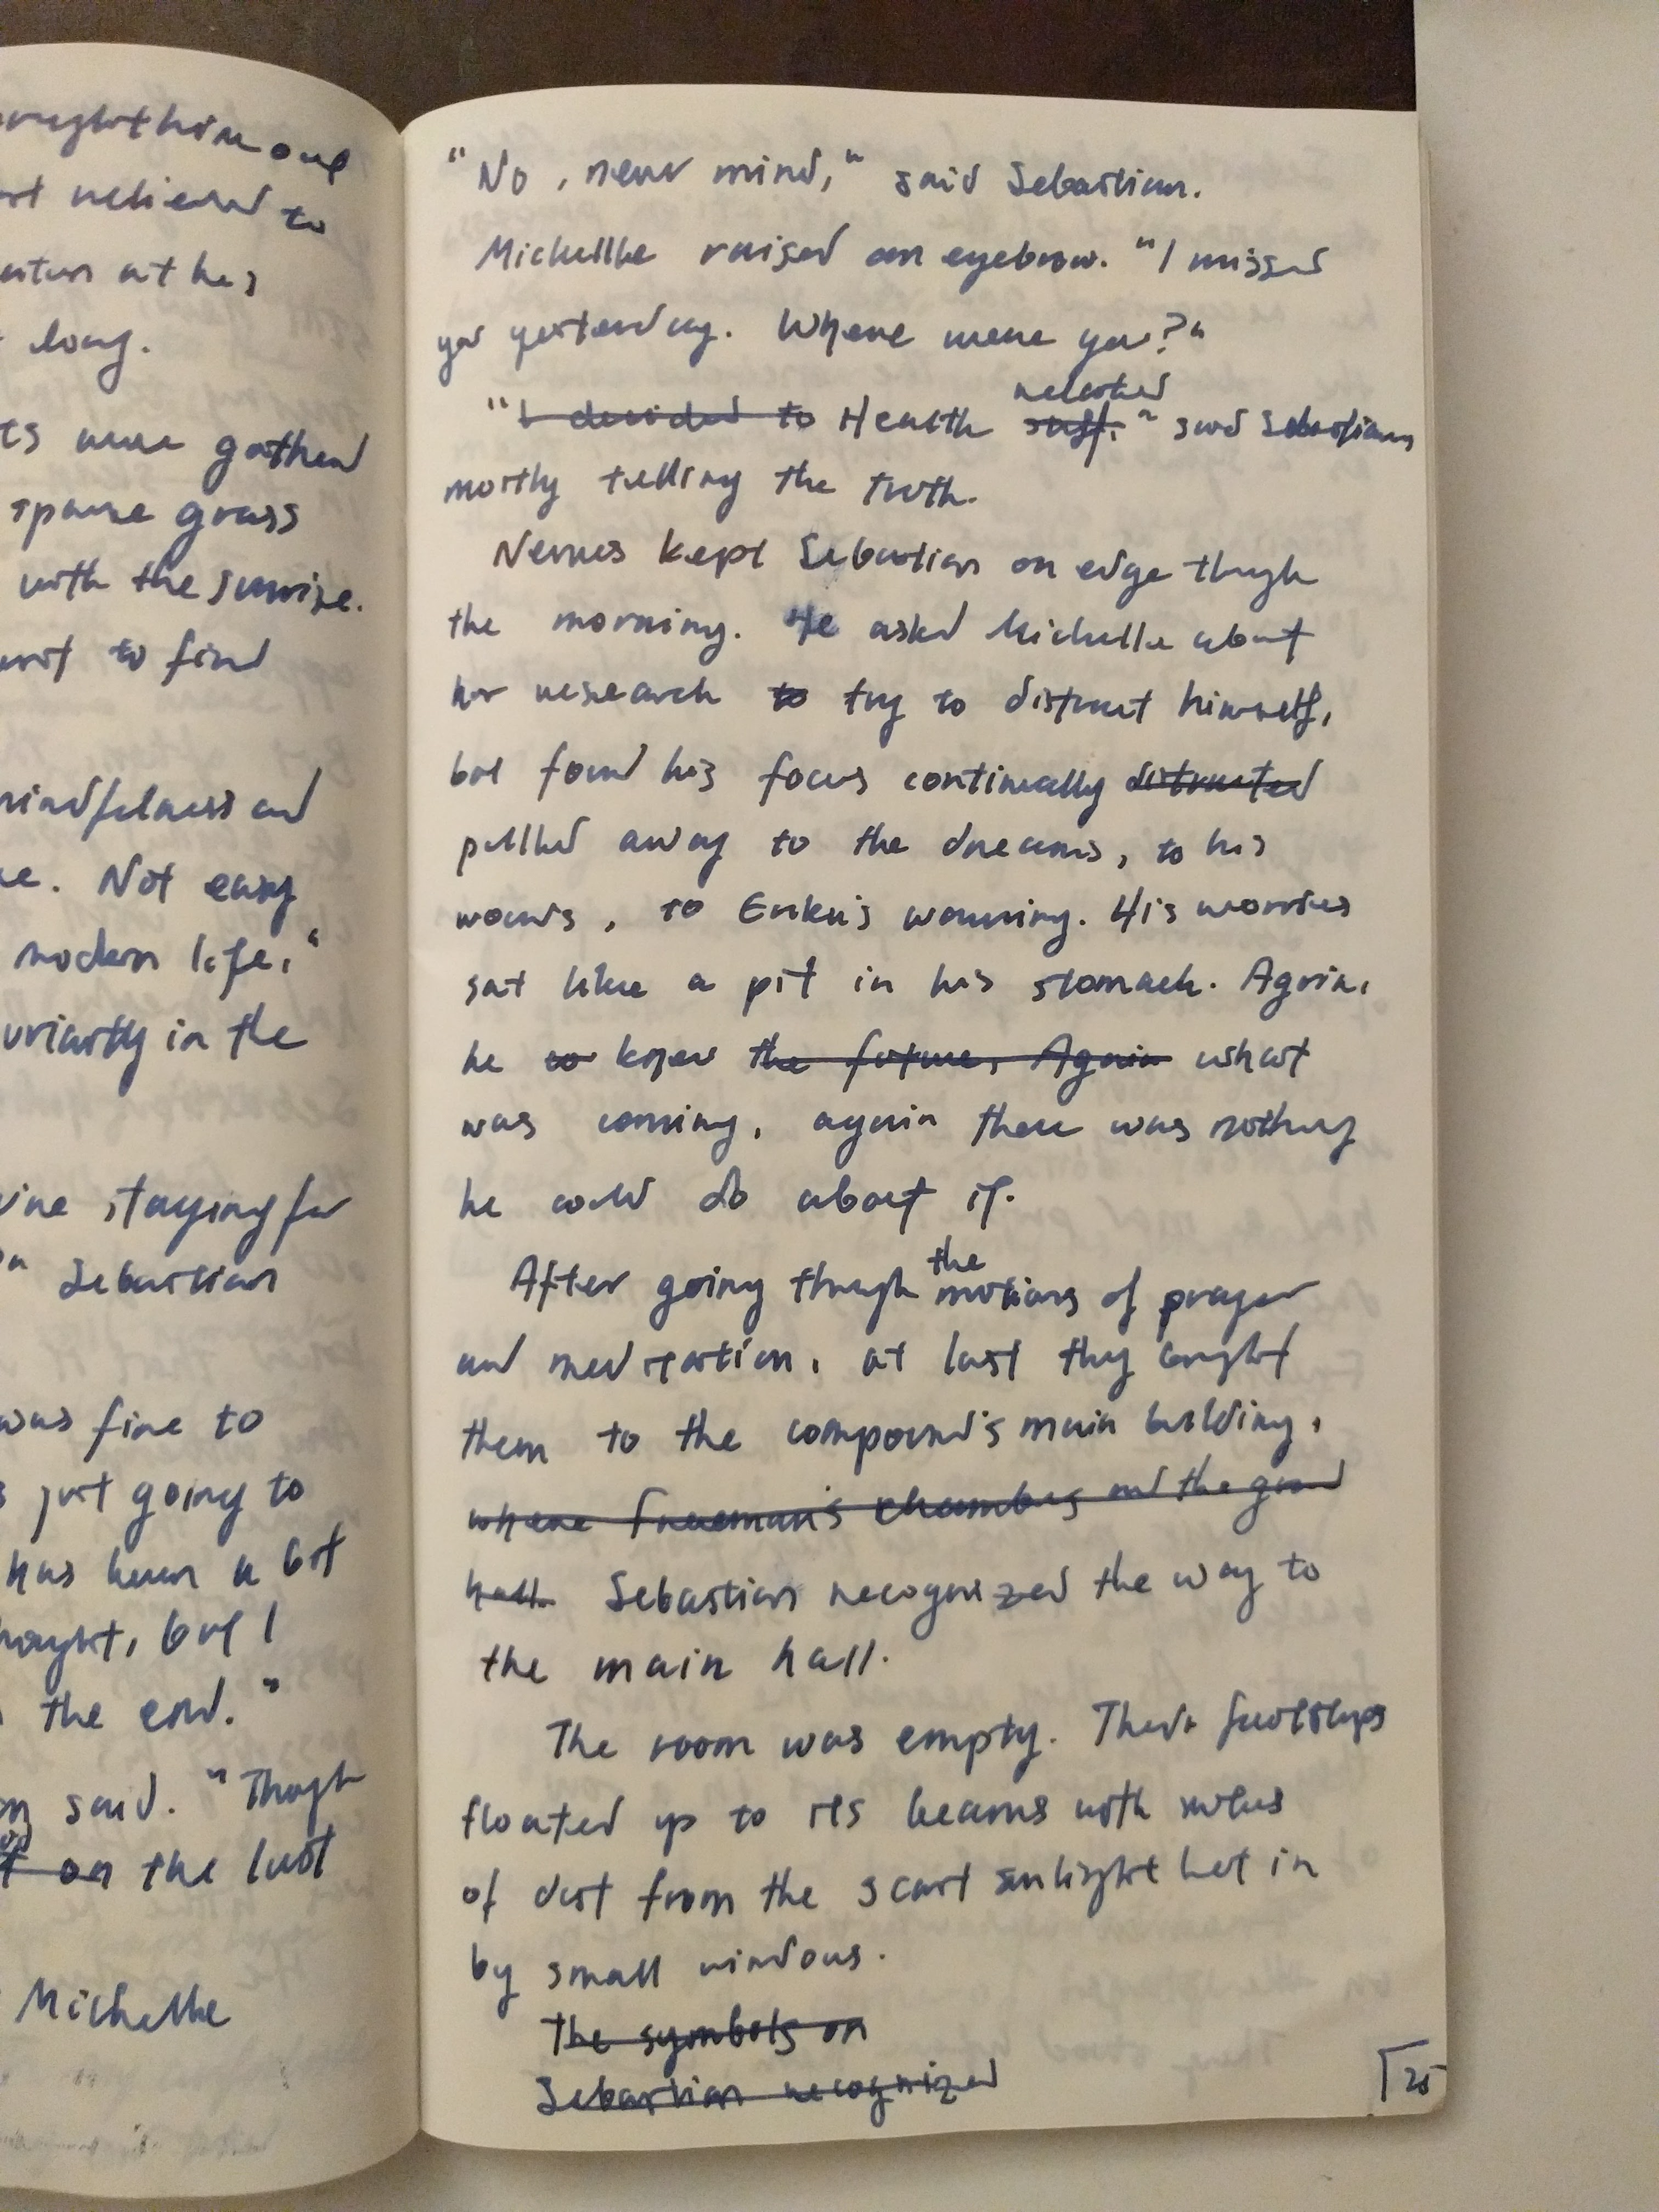 out
relieved to
at his
long.
were gathered
sparse grass
with the sunrise.
to find
mindfulness and
Not easy
modern life,"
in the
staying for
Sebastian
was fine to
just going to
has been a bit
but I
the end."
said. "Though
on the last
Michelle
"No, never mind," said Sebastian.
Michelle raised an eyebrow. "I missed
you yesterday. Where were you?"
related
"I decided to Health stuff." said Sebastian,
mostly telling the truth.
Nerves kept Sebastian on edge through
the morning. He asked Michelle about
her research to try to distract himself,
but found his focus continually distracted
pulled away to the dreams, to his
to Erika's warning. His worries
sat like a pit in his stomach. Again,
he knew the future, Again what
was coming, again there was nothing
he could do about it.
the
After going through motions of prayer
and meditation, at last they
them to the compound's main building,
where Freeman's chambers and the
hall. Sebastian recognized the way to
the main hall.
The room was empty. Their footsteps
floated up to its beams with motes
of dust from the scant sunlight let in
by small windows.
The symbols on
Sebastian recognized
25